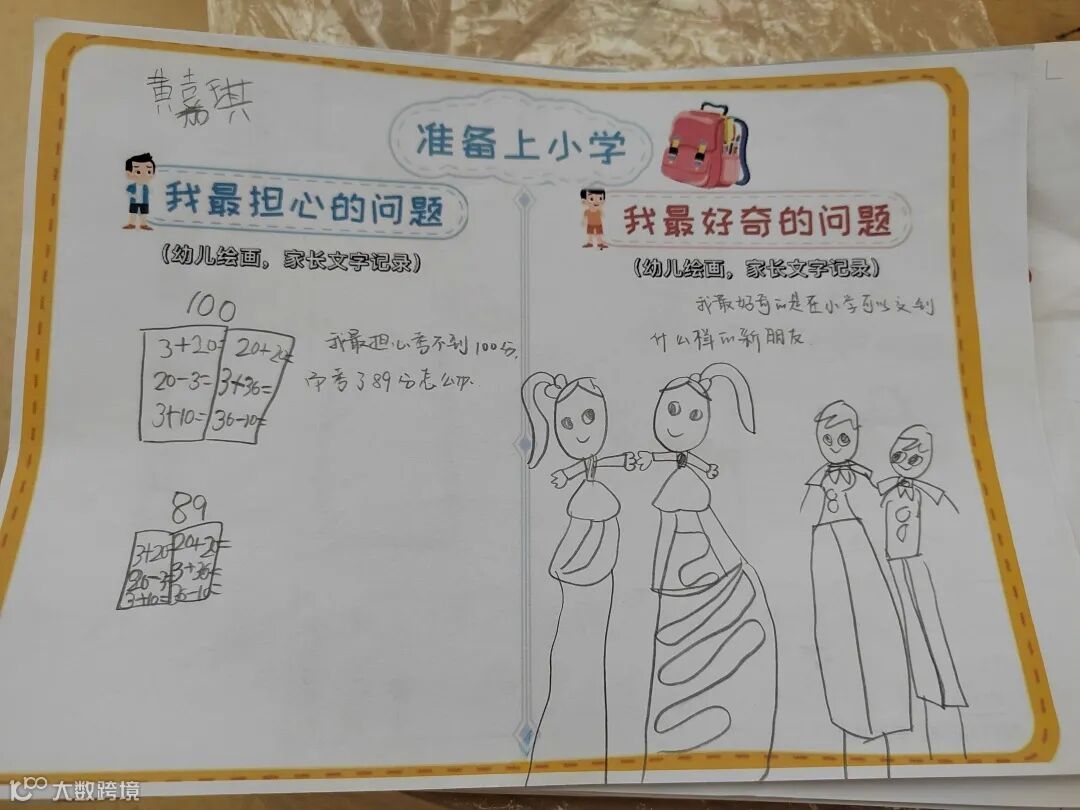 黄嘉琪
准备上小学
我最担心的问题
(幼儿绘画，家长文字记录)
100
3+20= 20+20=
20-3= 3+36=
3+10= 36-10=
我最担心考不到100分,
而考了89分怎么办.
89
3+20= 20+20=
20-3= 3+36=
3+10= 36-10=
我最好奇的问题
(幼儿绘画，家长文字记录)
我最好奇的是在小学可以交到
什么样的新朋友.
大数跨境